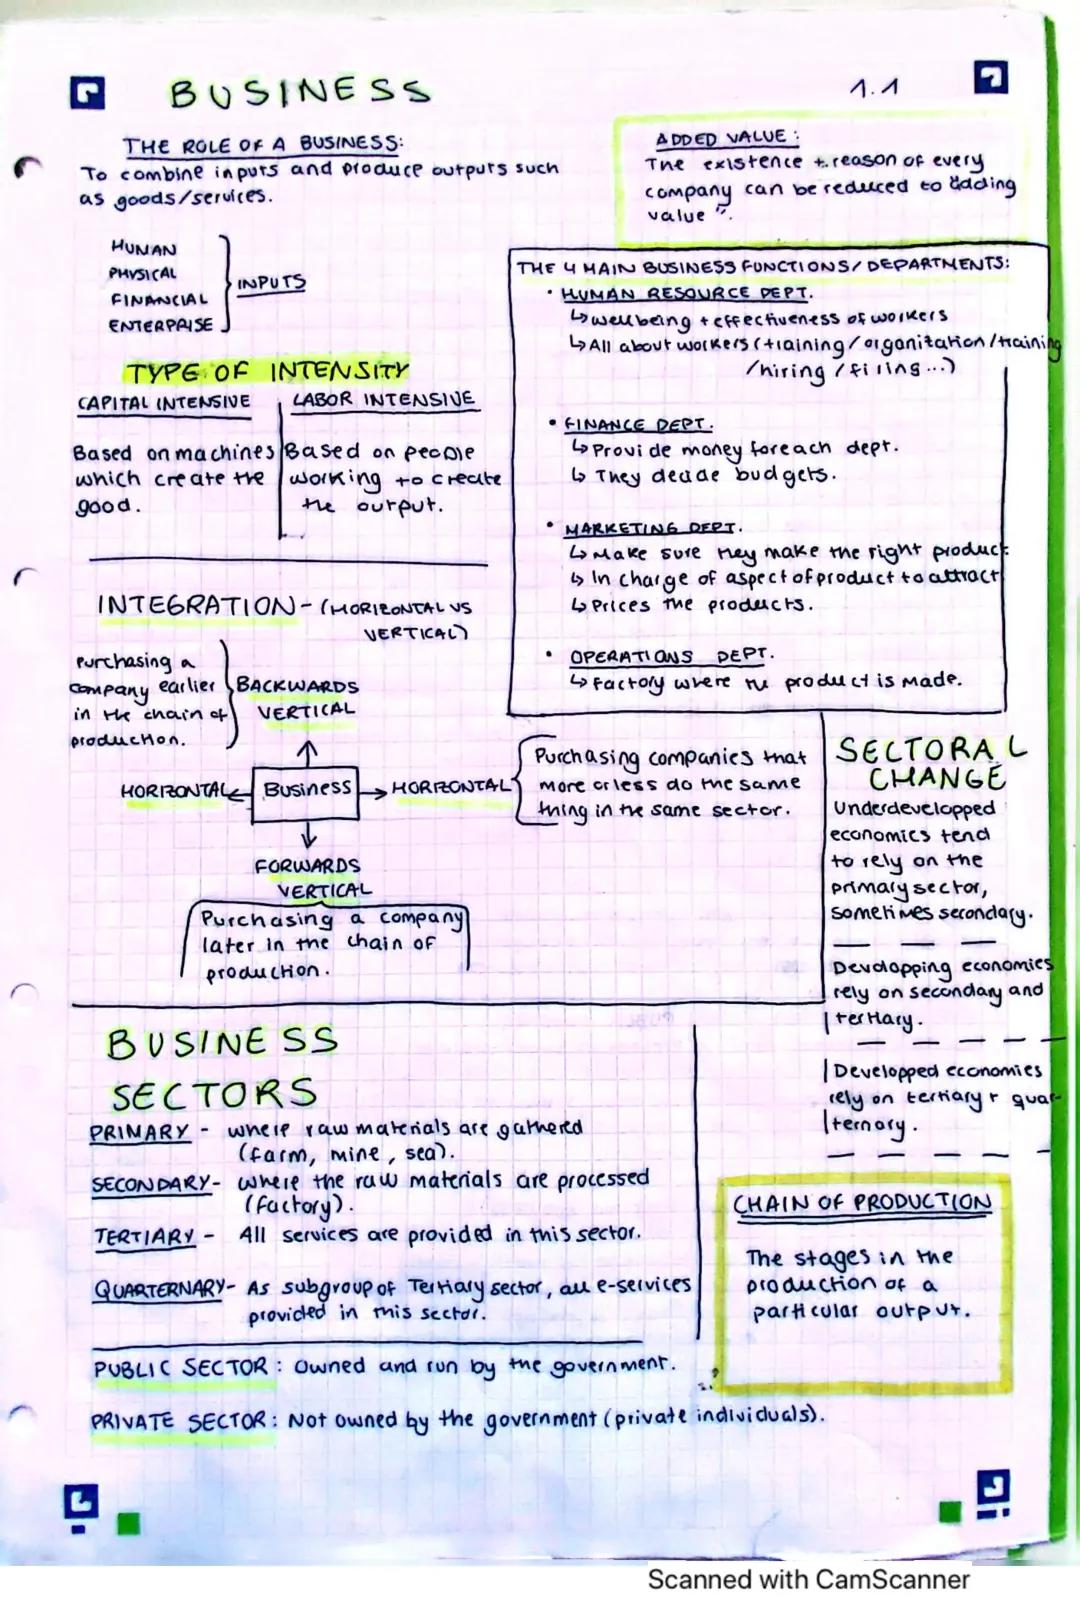 BUSINESS
1.1
THE ROLE OF A BUSINESS:
To combine inputs and produce outputs such
as goods/services.
ADDED VALUE:
The existence + reason of every
company can be reduced to "adding
value".
HUMAN
PHYSICAL
FINANCIAL
ENTERPRISE
INPUTS
THE 4 MAIN BUSINESS FUNCTIONS/DEPARTMENTS:
• HUMAN RESOURCE DEPT.
↳ wellbeing + effectiveness of workers
↳ All about workers (training/organization/training
/hiring/firing...)
• FINANCE DEPT.
↳ Provide money for each dept.
↳ They decide budgets.
• MARKETING DEPT.
↳ Make sure they make the right product
↳ In charge of aspect of product to attract
↳ Prices the products.
• OPERATIONS DEPT.
↳ factory where the product is made.
TYPE OF INTENSITY
CAPITAL INTENSIVE
Based on machines
which create the
good.
LABOR INTENSIVE
Based on people
working to create
the output.
INTEGRATION - (HORIZONTAL VS
VERTICAL)
Purchasing a
company earlier
in the chain of
production.
BACKWARDS
VERTICAL
HORIZONTAL
Business
HORIZONTAL
Purchasing companies that
more or less do the same
thing in the same sector.
FORWARDS
VERTICAL
Purchasing a company
later in the chain of
production.
SECTORAL
CHANGE
Underdevelopped
economics tend
to rely on the
primary sector,
sometimes secondary.
Developping economies
rely on secondary and
tertiary.
Developped economies
rely on tertiary + quar-
ternary.
BUSINESS
SECTORS
PRIMARY - where raw materials are gathered
(farm, mine, sea).
SECONDARY - where the raw materials are processed
(factory).
TERTIARY - All services are provided in this sector.
QUARTERNARY - As subgroup of Tertiary sector, all e-services
provided in this sector.
CHAIN OF PRODUCTION
The stages in the
production of a
particular output.
PUBLIC SECTOR: Owned and run by the government.
PRIVATE SECTOR: Not owned by the government (private individuals).
Scanned with CamScanner